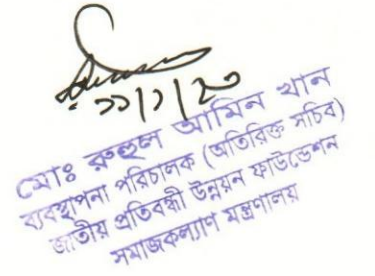 ২২/১/২০
মোঃ রুহুল আমিন খান
ব্যবস্থাপনা পরিচালক (অতিরিক্ত সচিব)
জাতীয় প্রতিবন্ধী উন্নয়ন ফাউন্ডেশন
সমাজকল্যাণ মন্ত্রণালয়